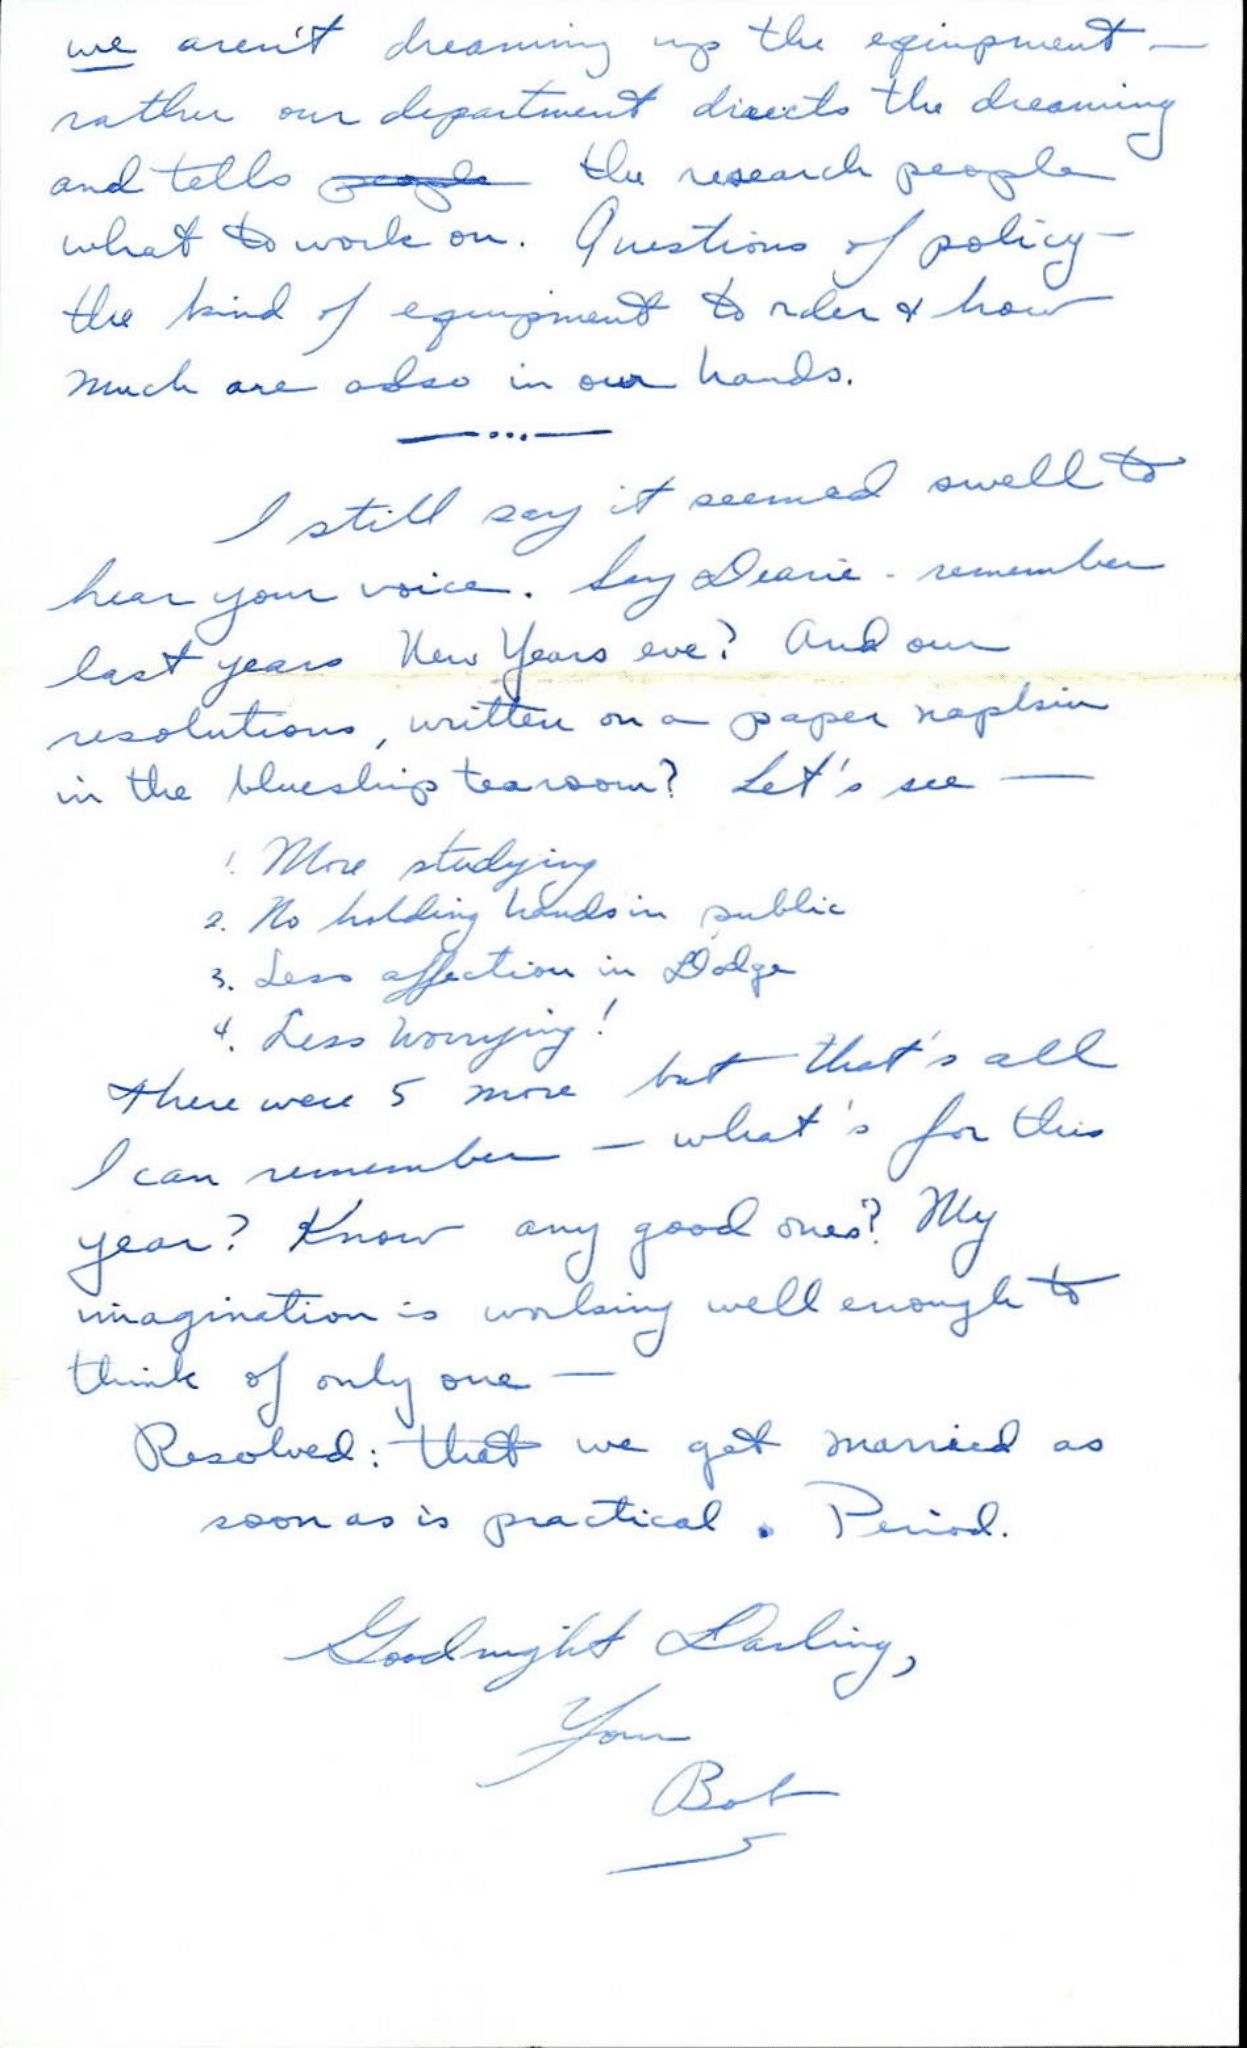 we aren't dreaming up the equipment —
rather our department directs the dreaming
and tells ~~people~~ the research people
what to work on. Questions of policy —
the kind of equipment to rder & how
much are also in our hands.
—...—
I still say it seemed swell to
hear your voice. Say Dearie - remember
last years New Years eve? And our
resolutions, written on a paper napkin
in the blueship tearoom? Let's see —
1. More studying
2. No holding hands in public
3. Less affection in Dodge
4. Less worrying!
there were 5 more but that's all
I can remember — what's for this
year? Know any good ones? My
imagination is working well enough to
think of only one —
Resolved: that we get married as
soon as is practical. Period.
Goodnight Darling,
Your
Bob